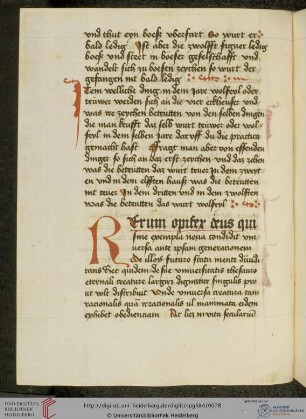 vnd thut eyn boeß vberfart So wurt er
bald ledig Ist aber die zwolfft figuer ledig
boeß vnd stett in boeser geselschafft vnd
wandelt sich zu boesen zerchen so wurt der
gefangen nit bald ledig
Item welliche ding in dem Jare wolfeyl oder
teuwer werden sich an die vier eckheuser vnd
was vor zerchen betutten von den selben dingen
die man keufft das selb wurt teuwer oder wol
feyl in dem selben jare dar vff du die practica
gemacht hast Fragt man aber von essenden
dingen so sich an das erst zerchen vnd das zehen
was die betutten das wurt teuer In dem zwey
en vnd in dem elfften hauß was die betutten
nit teuer In dem dritten vnd in dem zwolfften
was die betutten das wurt wolfeyl
Rerum opifex deus qui
sine exempla noua condidit vni
uersa ante ipsam generationem
de illis futuro statu mente diiudi
cans Hec quidem de sue vniuersitatis thesauro
eternali creature largiri dignatur singulis pro
ut vult distribuit Vnde vniuersa creatura tam
rationalis quam irrationalis vl inanimata eidem
exhibet obedienciam Ac licz in vita secularium
UNIVERSITÄTS-
BIBLIOTHEK
HEIDELBERG
http://digi.ub.uni-heidelberg.de/diglit/cpg584/0078
© Universitätsbibliothek Heidelberg